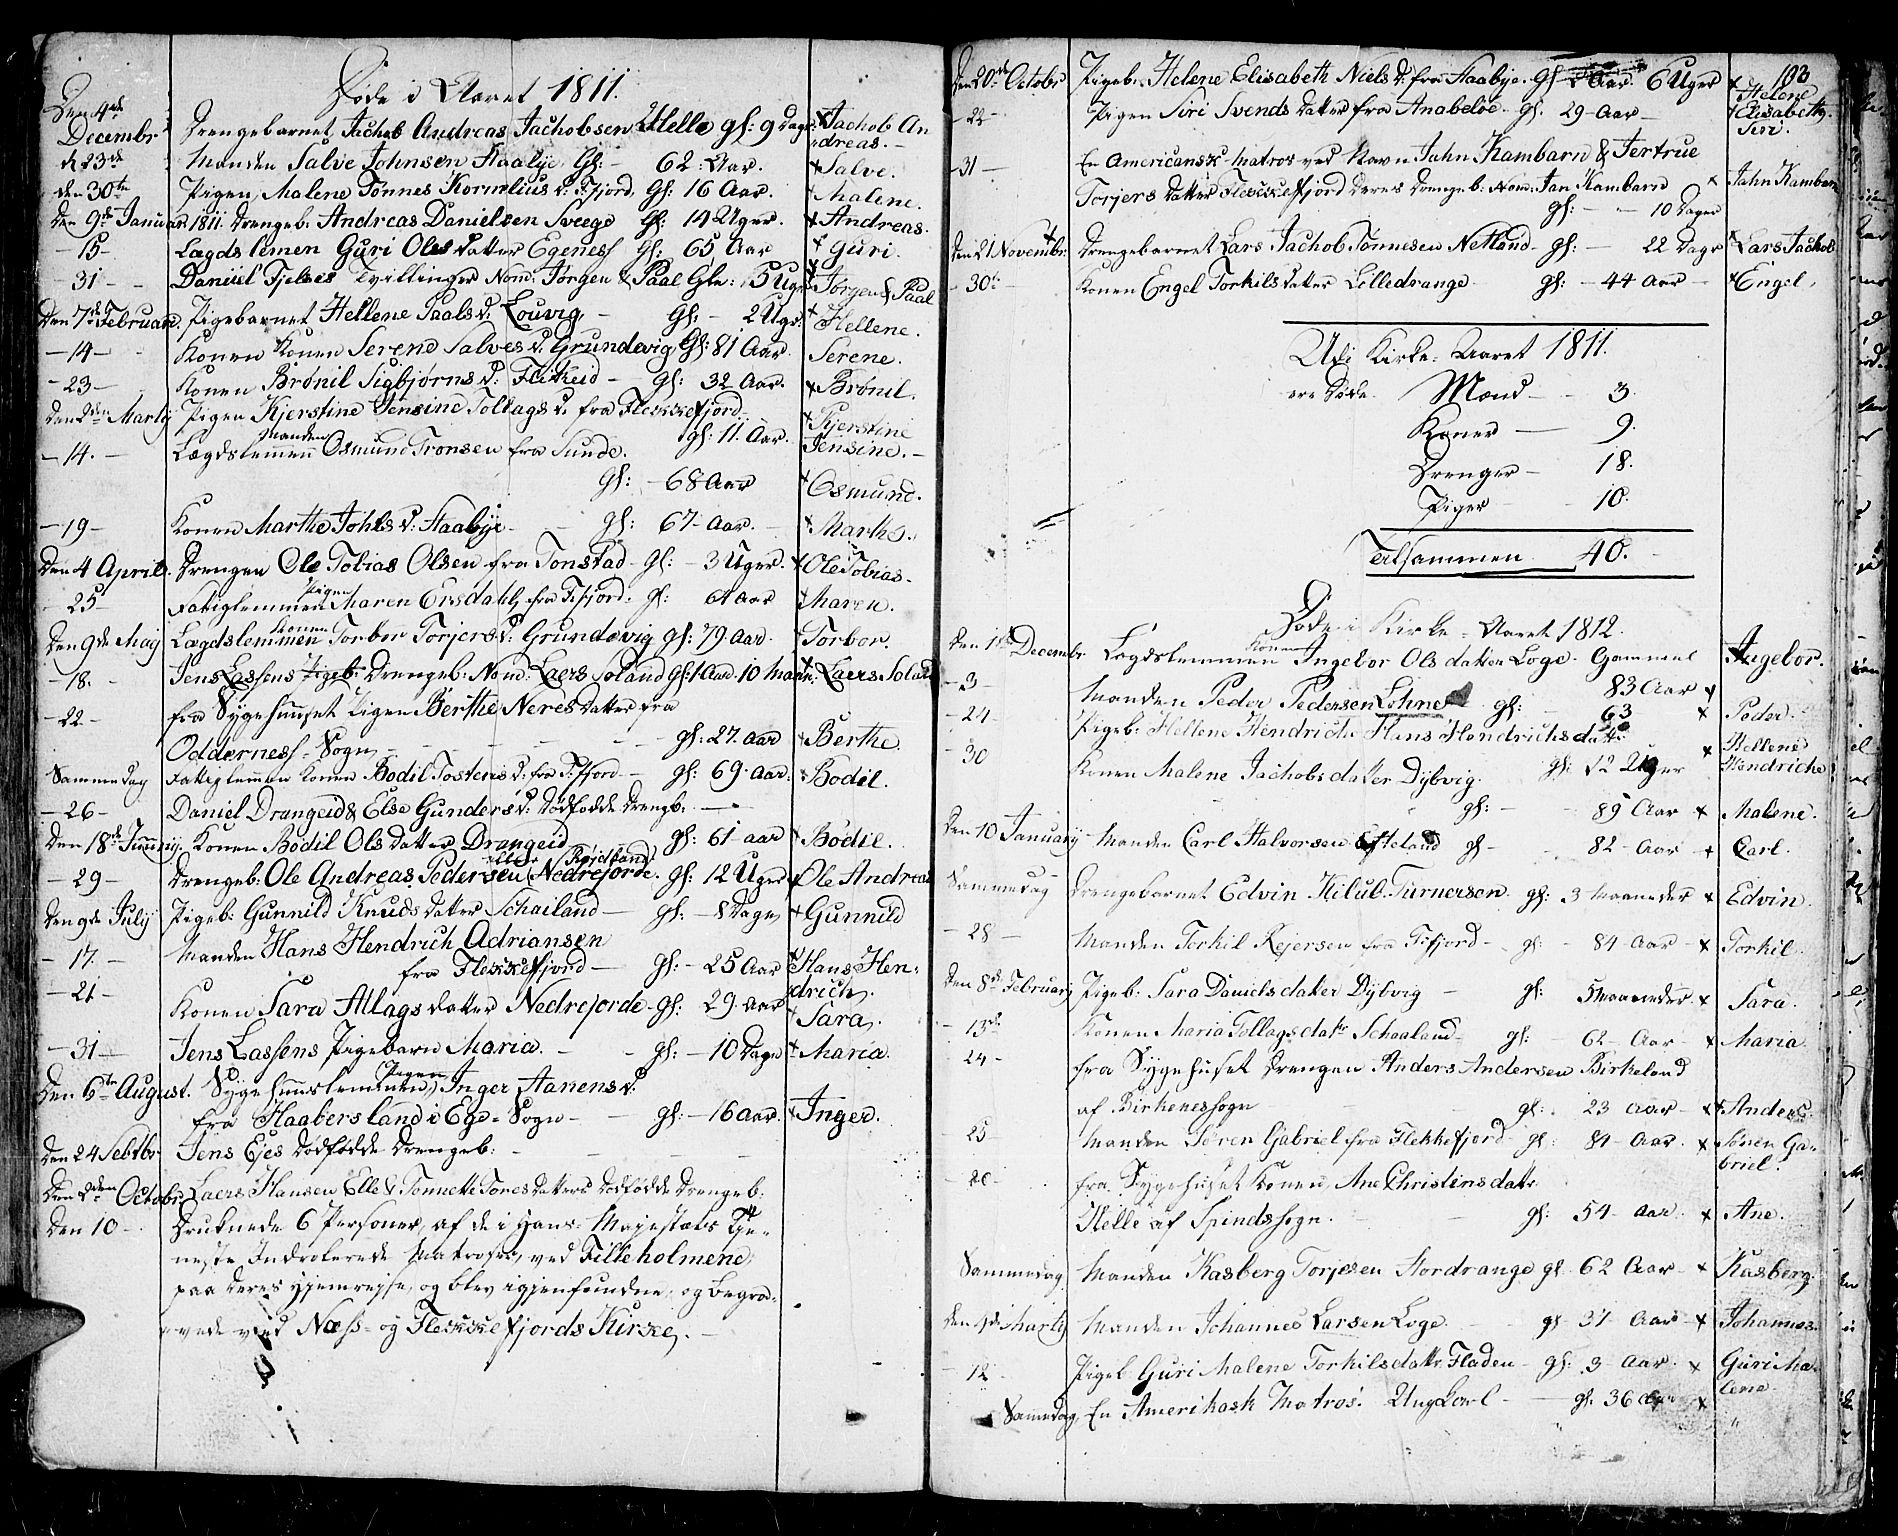 Døde i Aaret 1811.
Den 4de
Decembr Drengebarnet Jachob Andreas Jachobsen Helle gl: 9 Dage × Jachob An
dreas.-
d 23de Manden Salve Johnsen Staabye Gl: - 62: Aar. × Salve.
den 30te Pigen Malene Tønnes Kornelius D: F:fjord, Gl: 16 Aar. × Malene.
Den 9de Januar 1811. Drengeb: Andreas Danielsen Sveege Gl: 14 Uger. × Andreas.
- 15 - Lægdslemen Guri Olsdatter Egeness Gl: 65 Aar × Guri.
- 31 - - Daniel Fjelses Tvillinger Nom: Jørgen & Paal Gle: 5 Ugr × Jørgen & Paal
Den 7de Februari. Pigebarnet Hellene Paals D. Louvig, - Gl: - 2 Ugr. × Hellene.
- 14 - - Konen Konen Serene Salves D: Grundevig Gl: 81 Aar. Serene.
- 23 - Konen Brønil Sigbjørns D: Flikeid - Gl: 32 Aar. × Brønil.
Den 2den Martij Pigen Kjerstine Jensine Tollags D. fra Flekkefjord - × Kjerstine
gl: 11. Aar. Jensine. -
- 14. - Lægdslemmen Manden Osmund Tronsen fra Sunde.
Gl: - 68 Aar × Osmund.
- 19 - Konen Marthe Johls D: Staabye - gl: 67 - Aar. - × Marthe.
Den 4 April. Drengen Ole Tobias Olsen fra Tonstad - gl: - 3 Uger. × Ole Tobias -
- 25 - Fatiglemmen Pigen Maren Ersdahl, fra F:fjord: gl: 61 Aar × Maren.
Den 9de Maij Lægdslemmen Konen Torbor Torjers D: Grundevig gl: 79. Aar. × Torbor.
- 18. - Jens Lassens Pigeb: Drengeb: Nom: Laers Soland gl: 1 Aar. 10 Maan: × Laers Soland
- 22 - fra Sygehuuset Pigen Berthe Neresdatter fra
Odderness - Sogn - - - - - gl: 27. Aar × Berthe.
Sammedag Fattiglemmen Konen Bodil Tostens D: fra F:fjord - gl: 69. Aar. × Bodil.
- 26 - Daniel Drangeid & Else Gunders D: dødfødde Drengb: - -
Den 18de Junij. Konen Bodil Olsdatter Drangeid gl: 61 Aar × Bodil.
eller Røjeland
- 29 - Drengeb: Ole Andreas Pedersen Nedrefjorde. gl: 12 Uger × Ole Andreas
Den 9de Julij Pigeb: Gunnild Knudsdatter Schailand - gl: - 8 Dage × Gunnild
- 17. - Manden Hans Hendrich Adriansen
fra Flekkefjord - gl: - 25 Aar × Hans Hen-
drich.
- 21 - Konen Sara Atlagsdatter Nedrefjorde - gl: 29. Aar × Sara.
- 31 - Jens Lassens Pigebarn Maria. - - gl: - 10 Dage × Maria.
Den 6te August. Sygehuuslemmen, Pigen Inger Aanens D:
fra Haabersland i Ege - Sogn - - gl: - 16 Aar. × Inger.
Den 24 Sebtbr Jens Ejes dødfødde Drengeb: - - -
Den 2den Octobr Laers Hansen Elle & Tonnette Tonesdatters dødfødde Drengeb:
Den 10 - Druknede 6 Personer, af de i Hans Majestæts Tje-
neste Indrolerede Matroser, ved Filleholmene,
paa deres Hjemrejse, og blev igjenfundne, og begra-
vede ved Næss - og Flekkefjords Kirke. -
103
Den 20de Octobr Pigeb: Helene Elisabeth Niels D: fra Staabye. gl: Aar. 6 Uger × Helene
Elisabeth.
- 22 - Pigen Siri Svends datter fra Anabeløe - gl. 29 - Aar - × Siri.
- 31 - En Americansk Matros ved Navn John Kambarn & Jertrue
Torjers datter Flekkefjord deres Drengeb: Nom: Jan Kambarn × Jahn Kambarn
gl: - - 10 Dager
Den 21 Novembr: Drengebarnet Lars Jachob Tønnesen Netland - gl: - 22 Dage × Lars Jachob
- 30te - Konen Engel Torkilsdatter Lilledrange - gl: - 44 Aar - × Engel.
Udi Kirke: Aaret 1811.
ere Døde. Mænd - - 3.
Koner - 9.
Drenger - 18.
Piger - 10.
Tilsammen 40. -
Døde i Kirke - Aaret 1812.
Den 1ste Decembr Lægdslemmen Konen Ingebor Olsdatter Loge. Gammel
83 Aar × Ingebor.
- 3 - Manden Peder Pedersen Lohne gl: - 63 × Peder.
- 24 - Pigeb: Hellene Hendriche Hans Hendrichsdatter
gl: 12 Uger × Hellene
Hendriche
- 30 Konen Malene Jachobsdatter Dybvig.
gl: - - 89 Aar × Malene.
Den 10 Januarij - Manden Carl Halvorsen Efteland gl - - 82 - Aar × Carl.
Sammedag Drengebarnet Edvin Hilub. Turnersen. gl: 3 Maaneder × Edvin.
- 28 - Manden Torkil Rejersen fra F:fjord - gl: - 84 - Aar - × Torkil.
Den 8de Februarij Pigeb: Sara Danielsdatter Dybvig - gl: 5 Maaneder × Sara.
- 13de Konen Maria Tollagsdatr Schaaland - gl: - 62 - Aar - × Maria.
- 24 - fra Sygehuset Drengen Anders Andersen Birkeland
af Birkenessogn - - - gl: 23 Aar - × Anders.
- 25 - Manden Søren Gabriel fra Flekkefjord - gl: 84 - Aar. × Søren Ga-
briel.
- 26 - fra Sygehuset Konen, Ane Christensdatr
Helle af Spindssogn. - gl: 54 - Aar × Ane.
Sammedag Manden Kasberg Torjesen Stordrange gl - 62 Aar - × Kasberg:
Den 1de Martij Manden Johannes Larsen Loge. gl - 37 - Aar - × Johannes.
- 12 - Pigeb Guri Malene Torkilsdattr. Fladen - gl: 3 - Aar. × Guri Ma-
lene.
Samedag, En Amerikask Matros. Ung Karl - - gl: 36 Aar × "